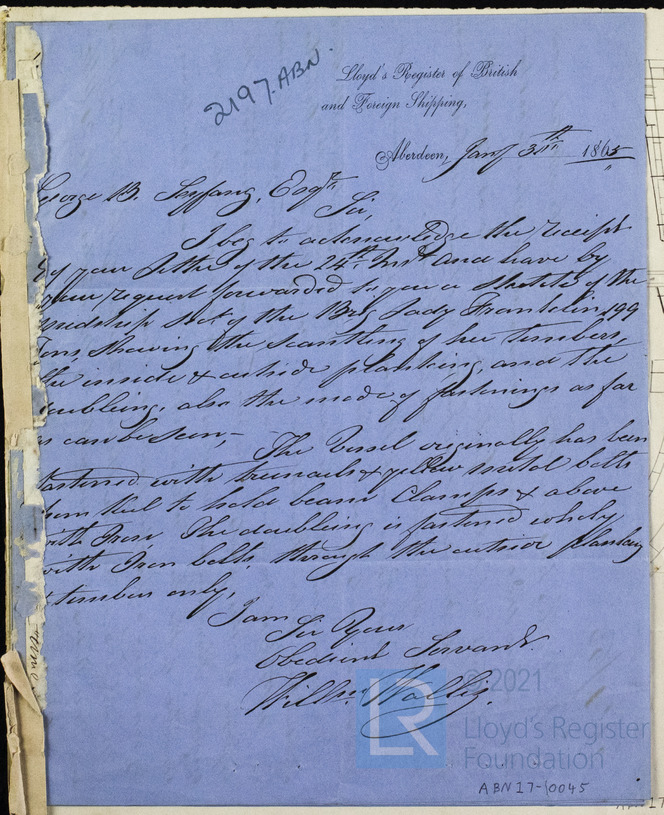 2197.ABN.
Lloyd's Register of British
and Foreign Shipping,
Aberdeen, Jany 1865
George B. Esqre
Sir,
I beg to acknowledge the receipt
of your letter of the 24th Inst and have by
your request forwarded to you a sketch of the
midship sect of the Brig Lady Franklin, 199
Tons, shewing the scantling of her timbers,
the inside & outside planking, and the
doubling, also the mode of fastenings as far
as can be seen,-
The Vessel originally has been
fastened with treenails & yellow metal bolts
from Keel to hold beam Clamps & above
with Iron The doubling is fastened wholy
with Iron bolts, through the outside planking
& timbers only,
I am
Sir Your
Obedient Servant.
Willm Wallis.
LR © 2021
Lloyd's Register
Foundation
ABN17-0045